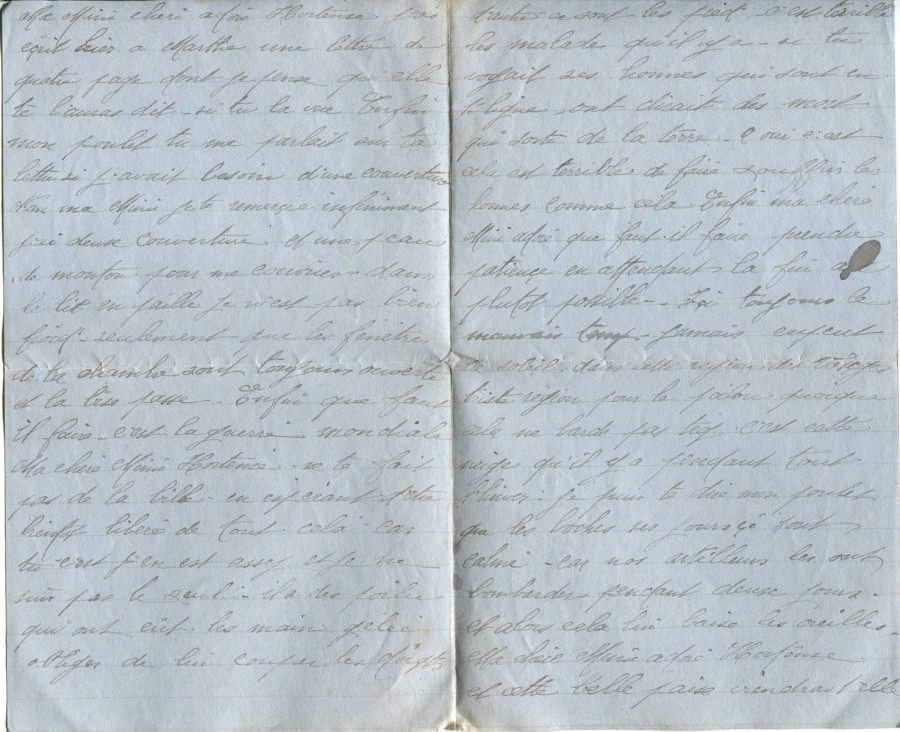 Ma Mimi cheri adoré Hortense j'ais
écrit hier a Marthe une lettre de
quatre page dont je pense qu'elle
te l'auras dit - si tu la vue Enfin
mon poulet tu me parlait sur ta
lettre si j'avait besoin d'une couverture
non ma Mimi je te remercie infiniment
j'ai deuse couverture et une peau
de mouton pour me couvrir - dans
le lit en paille je n'est pas bien
froid - seulement que les fenêtres
de la chambre sont toujours ouverte
et la bise passe - Enfin que faut
il faire - c'est la guerre mondiale
Ma chere Mimi Hortense - ne te fait
pas de la bille - en espérant d'etre
bientot libéré de tout cela car
tu c'est j'en est assez et je ne
suis pas le seul - il a des poilus
qui ont eut les main gélée
obliger de lui couper les doigts
d'autre ce sont les pied - c'est térrible
les malades qu'il y a - si tu
voyait ses hommes qui sont en
ligne - ont dirait des mort
qui sorte de la terre - oui c'est
cela est terrible de faire souffrir les
hommes comme cela Enfin ma chere
Mimi adoré que faut-il faire prendre
patience en attendant la fin
plutot possible - toujours le
mauvais temp - jamais
soleil - dans cette region des Vosges
triste région pour le poilou quoique
cela ne tarde pas trop c'est cette
neige qu'il y a pendant tout
l'hiver - je puis te dire mon poulet
que les boches ses jours çi sont
calme - car nos artilleurs les ont
bombarder pendant deuse jours -
et alors cela lui baise les oreilles -
Ma chere Mimi adoré Hortense
et cette belle paise viendras t'elle